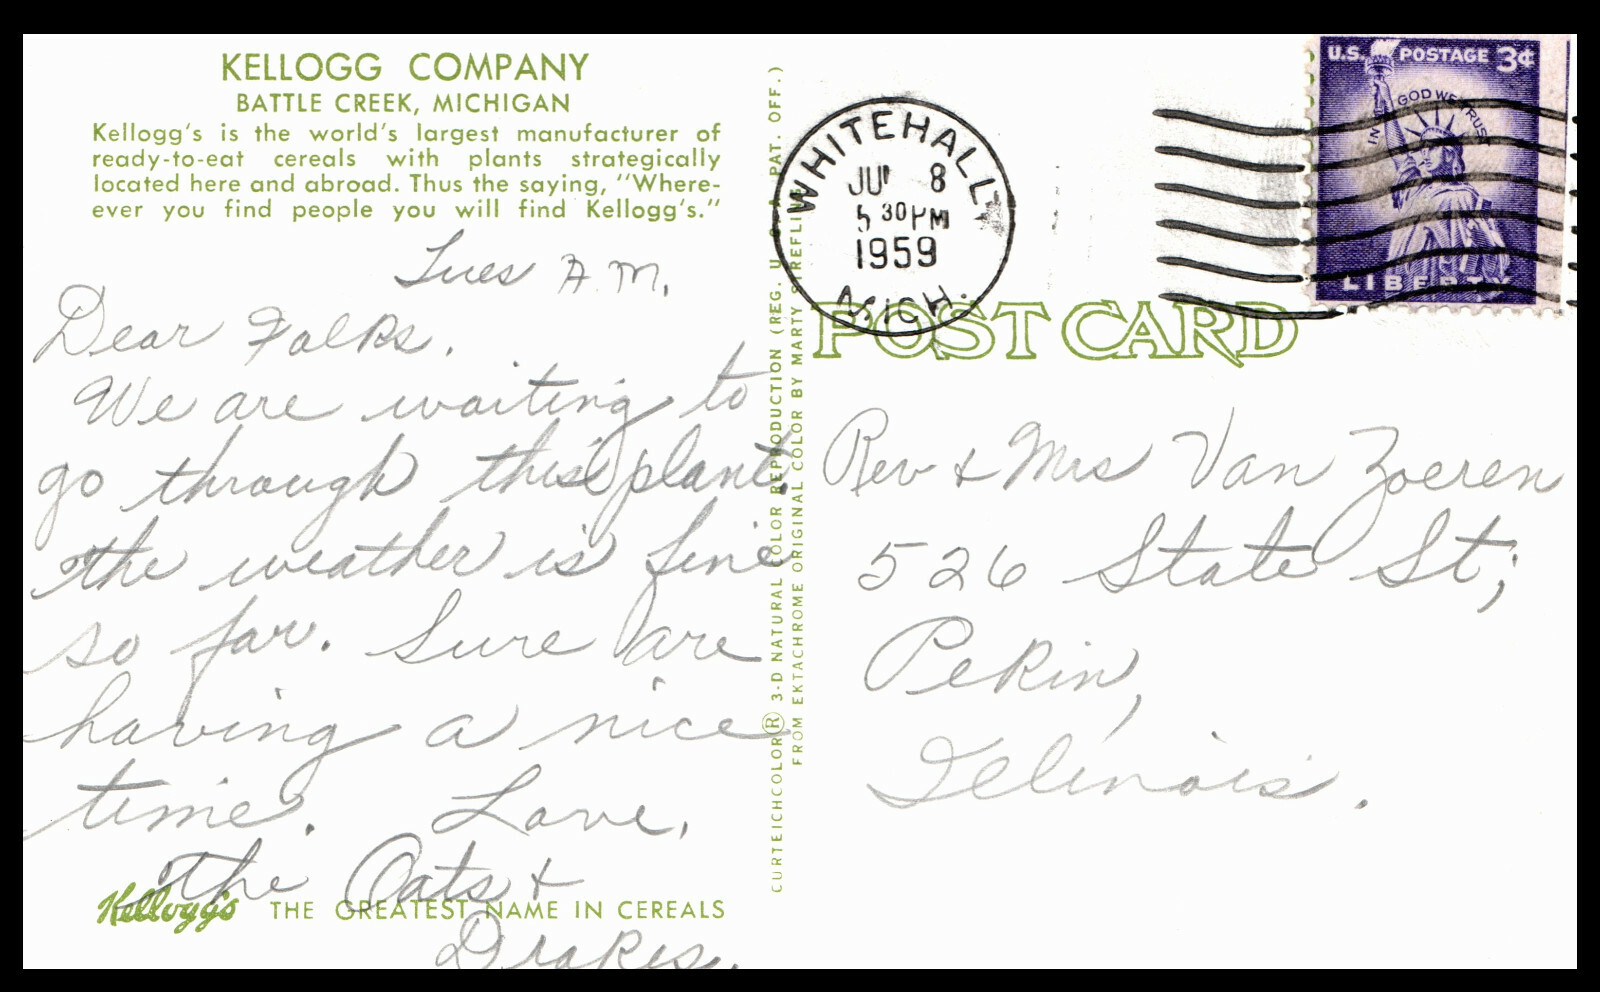 KELLOGG COMPANY
BATTLE CREEK, MICHIGAN
Kellogg's is the world's largest manufacturer of
ready-to-eat cereals with plants strategically
located here and abroad. Thus the saying, "Where-
ever you find people you will find Kellogg's."
Tues A.M.
Dear Folks.
We are waiting to
go through this plant.
the weather is fine
so far. Sure are
having a nice
time. Love,
The Oats &
Drakes.
Kellogg's THE GREATEST NAME IN CEREALS
CURTEICHCOLOR® 3-D NATURAL COLOR REPRODUCTION (REG. U. S. A. PAT. OFF.)
FROM EKTACHROME ORIGINAL COLOR BY MARTY STREFLING
WHITEHALL
8
5 30 PM
1959
MICH.
U.S. POSTAGE 3¢
IN GOD WE TRUST
LIBERTY
POST CARD
Rev & Mrs Van Zoeren
526 State St;
Pekin,
Illinois.